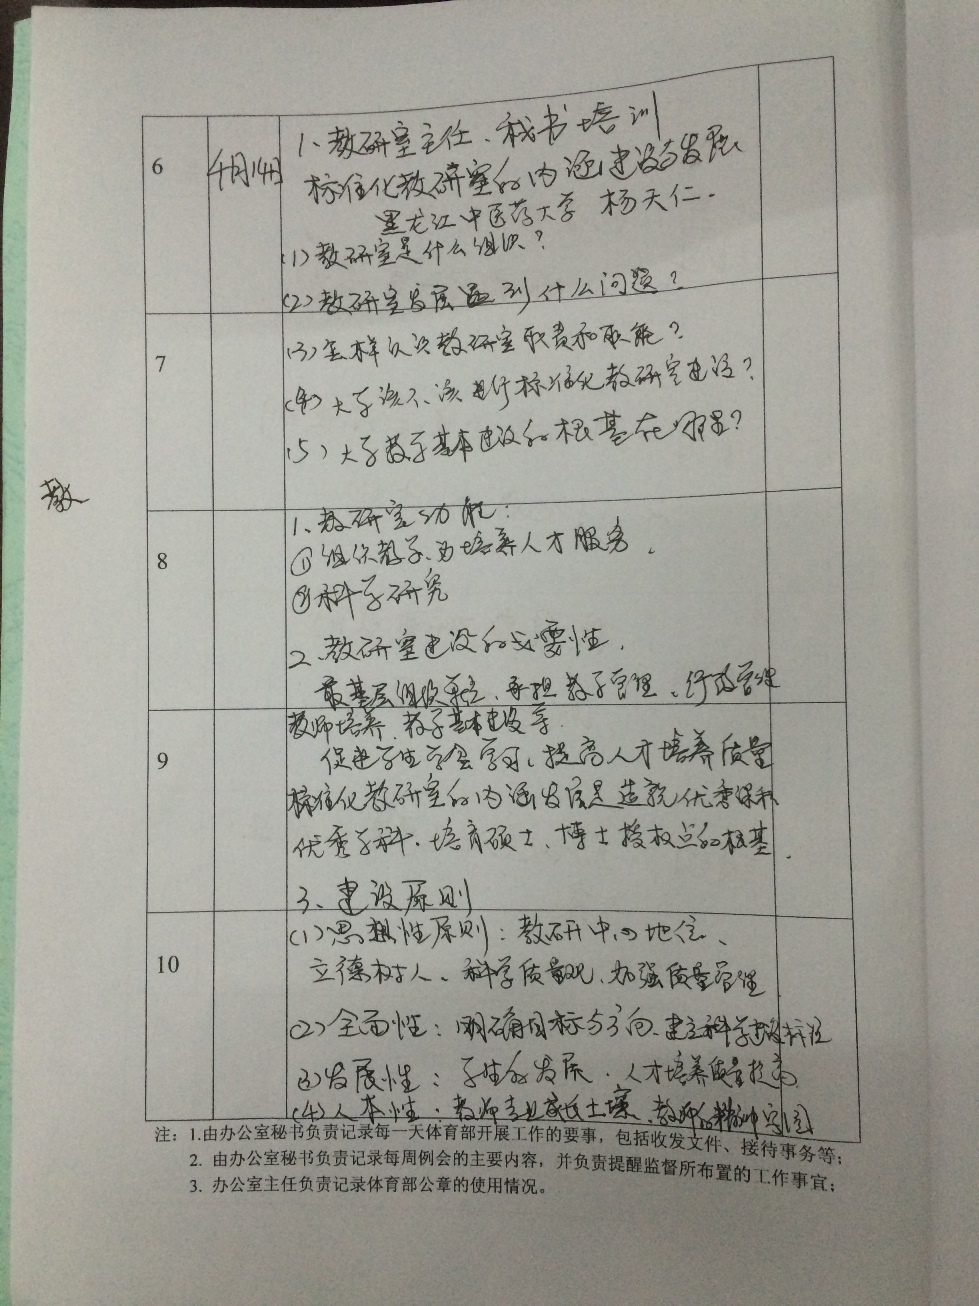 6
4月14日
1、教研室主任、秘书培训
标准化教研室的内涵建设与发展
黑龙江中医药大学 杨天仁.
(1)教研室是什么组织？
(2)教研室发展遇到什么问题？
7
(3)怎样认识教研室职责和职能？
(4)大学该不该进行标准化教研室建设？
(5)大学教学基本建设的根基在哪里？
教
8
1、教研室功能：
①组织教学、为培养人才服务.
②科学研究
2、教研室建设的必要性.
最基层组织单位、承担教学管理、行政管理
教师培养、教学基本建设等.
9
促进学生学会学习、提高人才培养质量
标准化教研室的内涵发展是造就优秀课程
优秀学科、培育硕士、博士授权点的根基.
3、建设原则
10
(1)思想性原则：教研中心地位、
立德树人、科学质量观、加强质量管理
(2)全面性：明确目标与方向、建立科学建设标准
(3)发展性：学生的发展、人才培养质量提高
(4)人本性：教师专业成长土壤、教师的精神家园
注：1.由办公室秘书负责记录每一天体育部开展工作的要事，包括收发文件、接待事务等；
2. 由办公室秘书负责记录每周例会的主要内容，并负责提醒监督所布置的工作事宜；
3. 办公室主任负责记录体育部公章的使用情况。